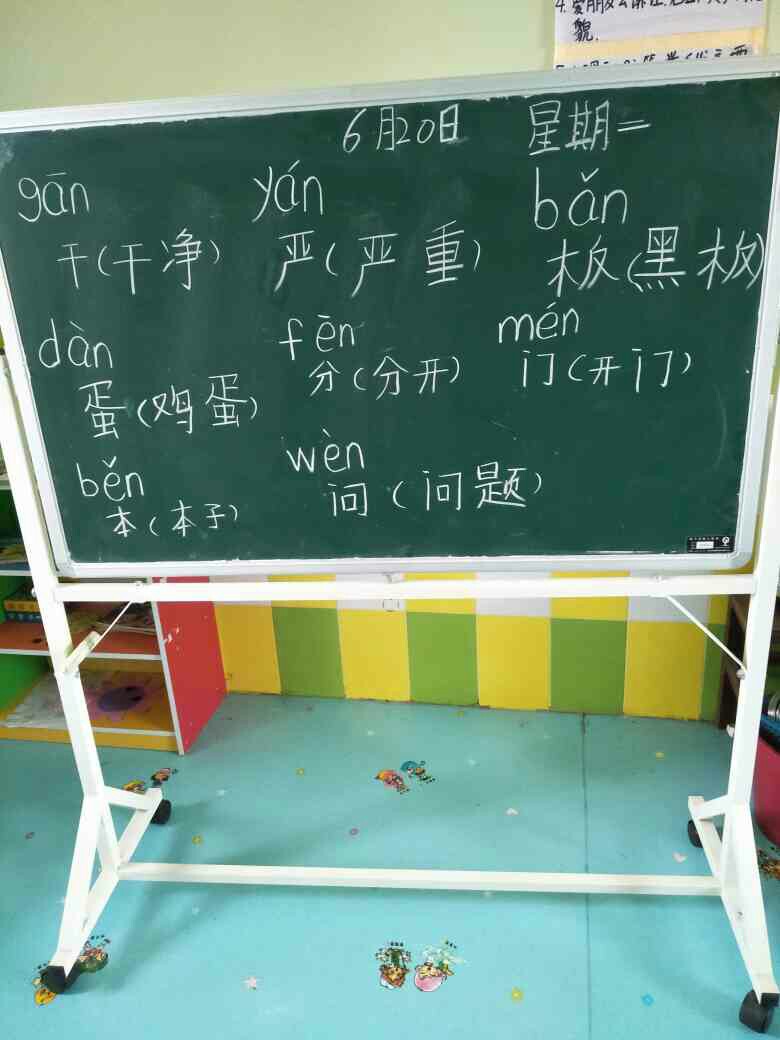 4.
貌.
6月20日 星期二
gān yán bǎn
干(干净) 严(严重) 板(黑板)
dàn fēn mén
蛋(鸡蛋) 分(分开) 门(开门)
běn wèn
本(本子) 问(问题)